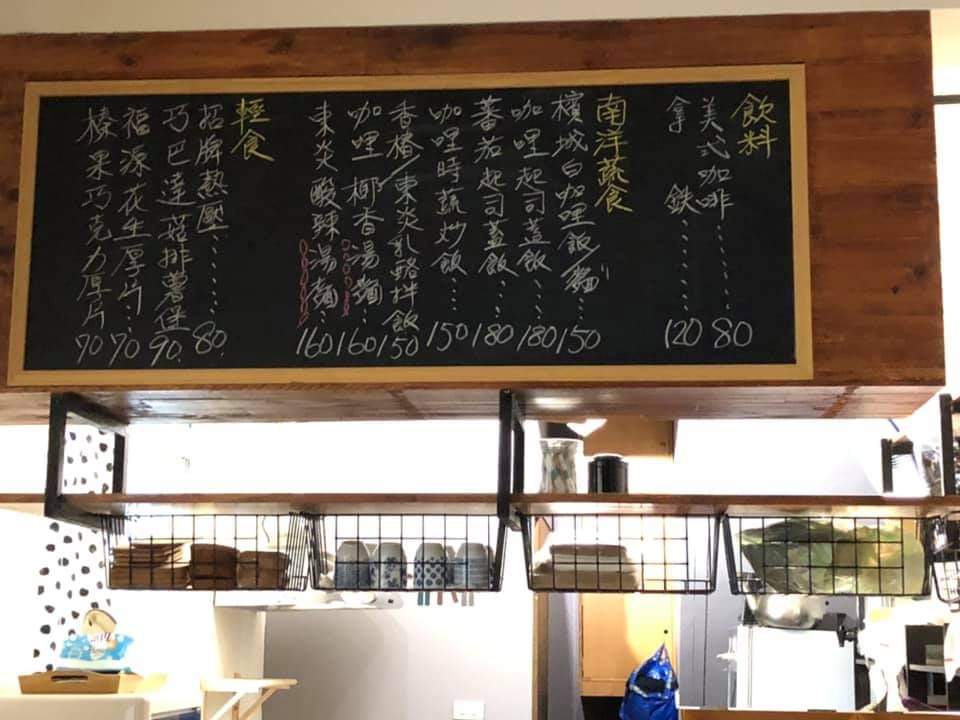 飲料
美式咖啡......80
拿鐵......120
南洋蔬食
檳城白咖哩飯/麵150
咖哩起司蓋飯..180
蕃茄起司蓋飯180
咖哩時蔬炒飯....150
香椿/東炎乳酪拌飯150
咖哩椰香湯麵..160
東炎酸辣湯麵..160
輕食
招牌熱壓......80.
巧巴達菇排薯堡90.
福源花生厚片...70
榛果巧克力厚片70